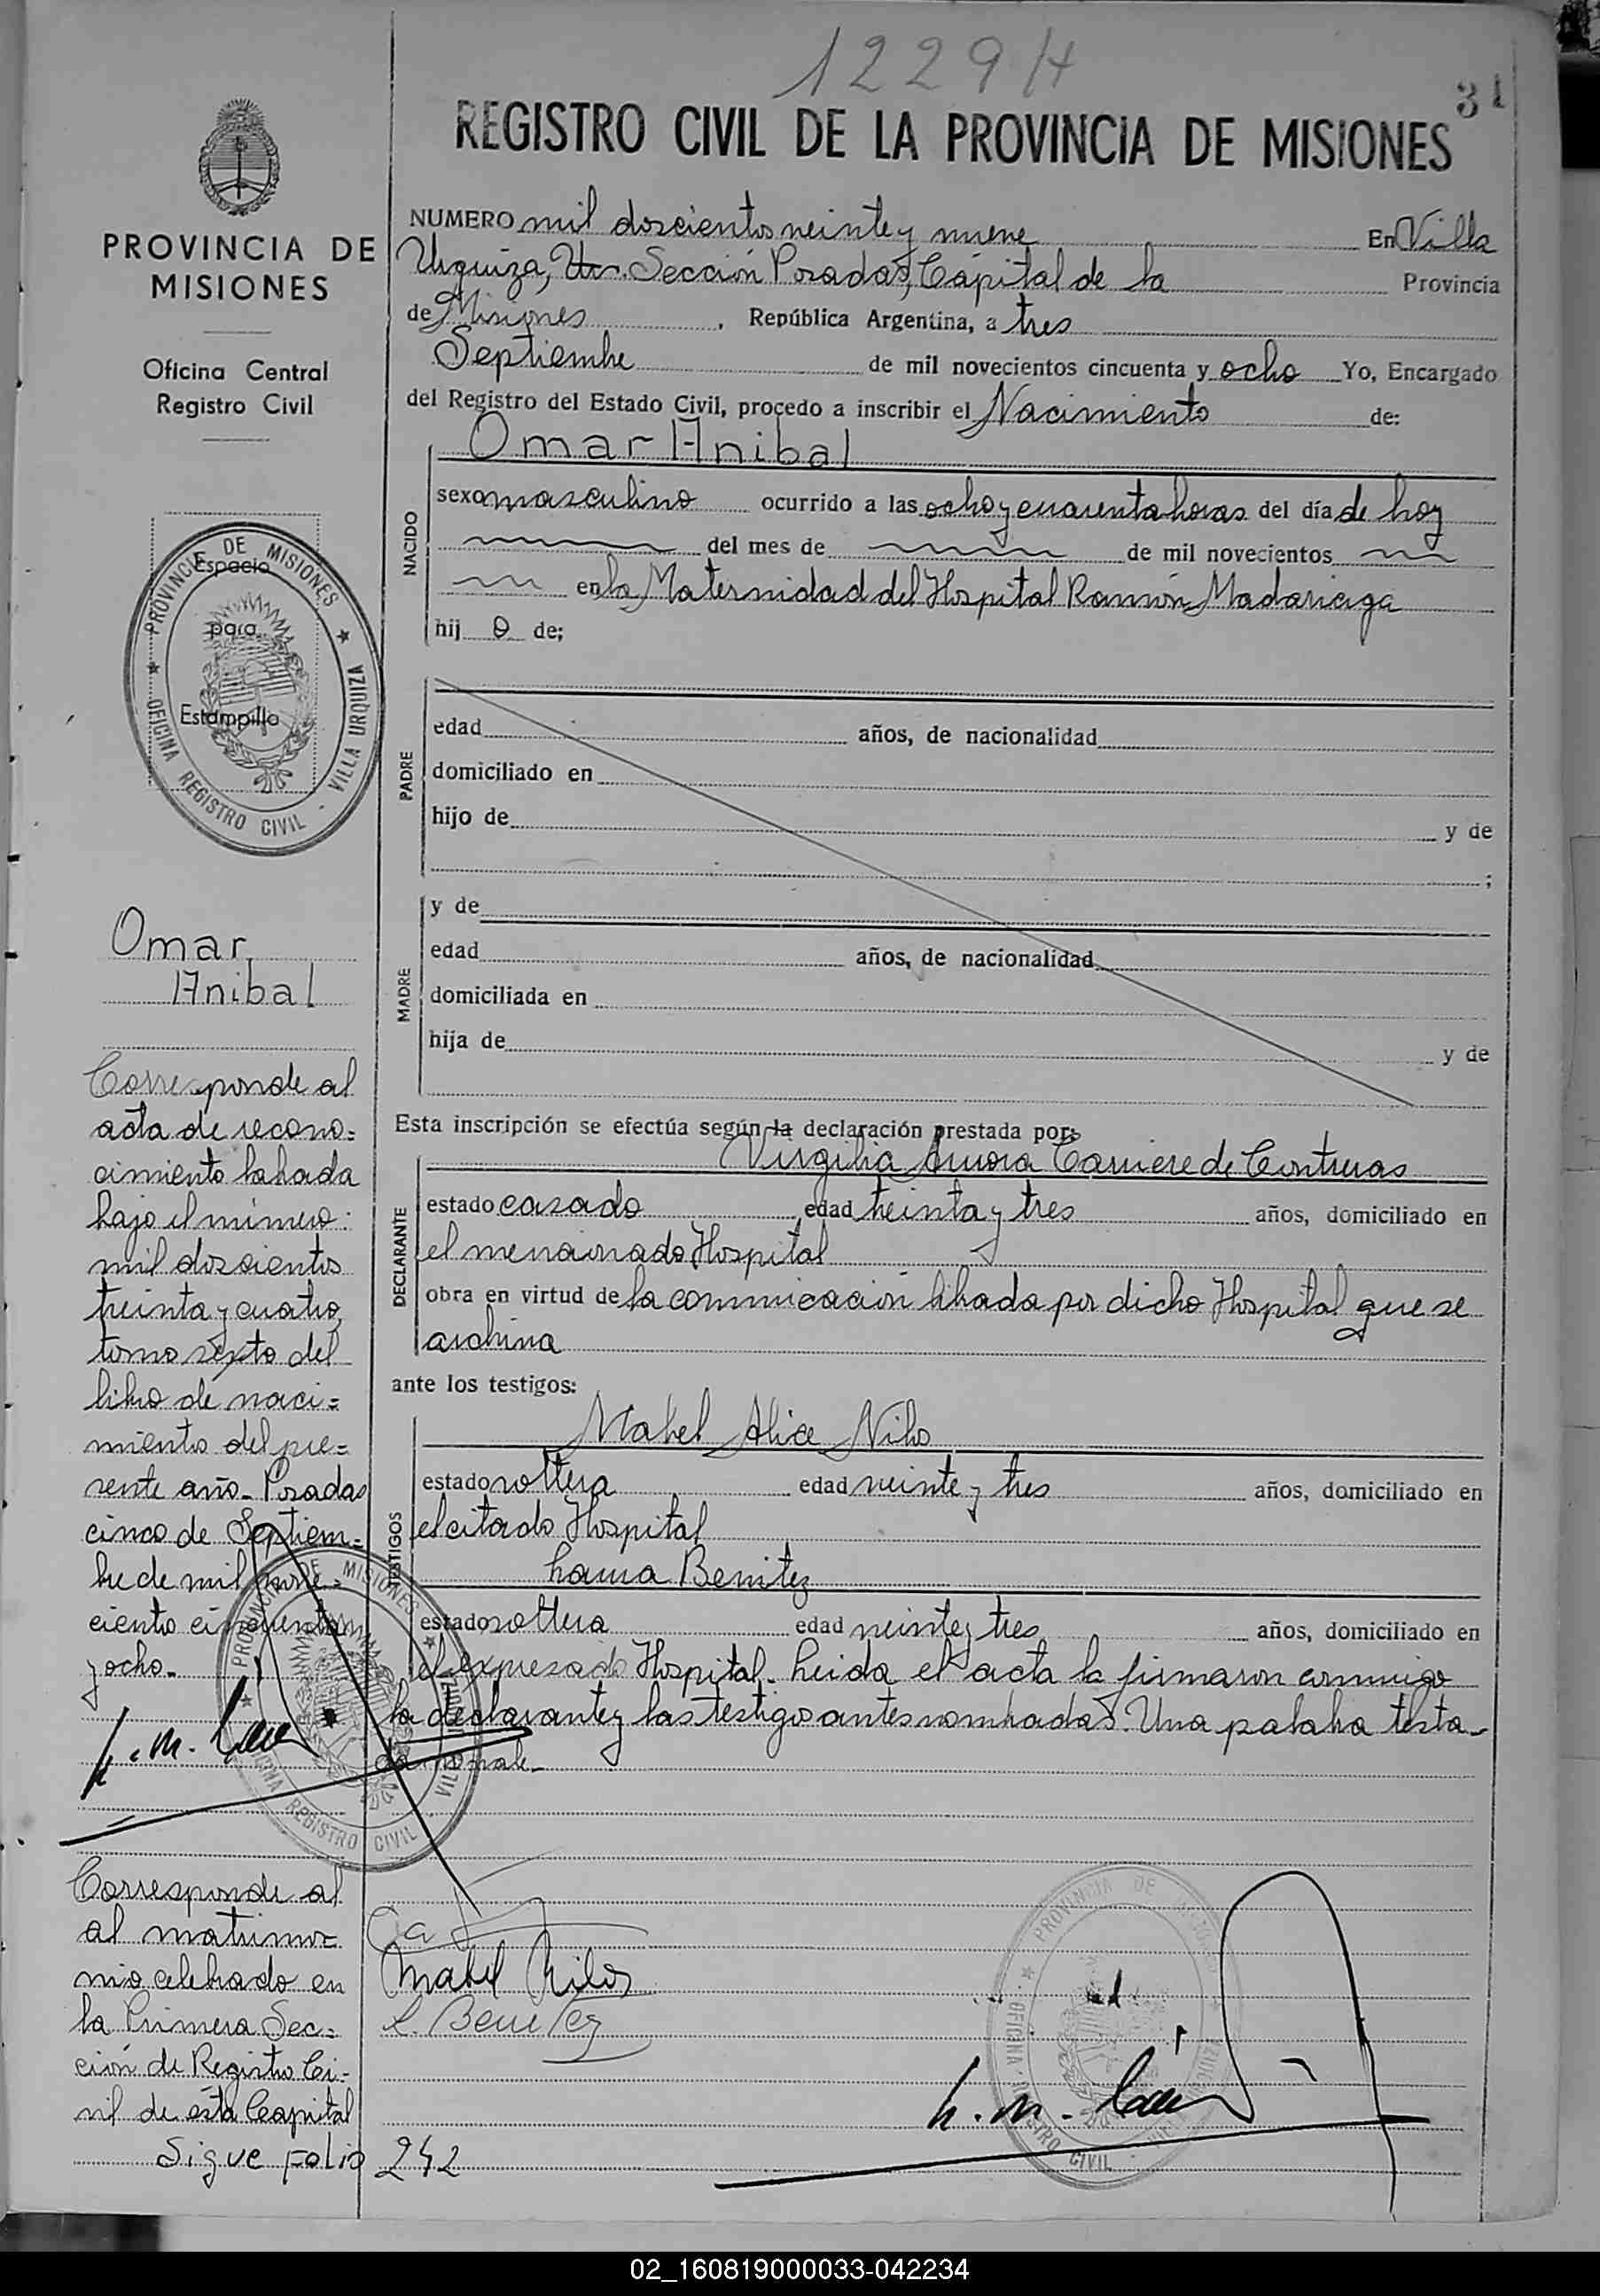 1229 H
31
REGISTRO CIVIL DE LA PROVINCIA DE MISIONES
PROVINCIA DE
MISIONES
Oficina Central
Registro Civil
PROVINCIA DE MISIONES
OFICINA REGISTRO CIVIL - VILLA URQUIZA
Espacio
para
Estampilla
Omar
Anibal
Corresponde al
acta de recono=
cimiento labrada
bajo el número:
mil doscientos
treinta y cuatro,
tomo sexto del
libro de naci=
miento del pre=
sente año. Posadas
cinco de Septiem=
bre de mil nove=
ciento cincuenta
y ocho.
Corresponde al
al matrimo=
nio celebrado en
la Primera Sec=
ción de Registro Ci-
vil de esta Capital
Sigue Folio 242
NUMERO mil doscientos veinte y nueve En Villa
Urquiza, Sección Posadas, Capital de la Provincia
de Misiones, República Argentina, a tres
Septiembre de mil novecientos cincuenta y ocho Yo, Encargado
del Registro del Estado Civil, procedo a inscribir el Nacimiento de:
Omar Anibal
NACIDO
sexo masculino ocurrido a las ocho y cuarenta horas del día de hoy
del mes de de mil novecientos
en la Maternidad del Hospital Ramón Madariaga
hij o de;
PADRE
edad años, de nacionalidad
domiciliado en
hijo de y de
;
MADRE
y de
edad años, de nacionalidad
domiciliada en
hija de y de
Esta inscripción se efectúa según la declaración prestada por:
Virgilia Aurora Carriere de Contreras
DECLARANTE
estado casado edad treinta y tres años, domiciliado en
el mencionado Hospital
obra en virtud de la comunicación librada por dicho Hospital que se
archiva
ante los testigos:
Mabel Alice Nilo
TESTIGOS
estado soltera edad veinte y tres años, domiciliado en
el citado Hospital
Laura Benitez
estado soltera edad veinte y tres años, domiciliado en
el expresado Hospital. Leida el acta la firmaron conmigo
la declarante y las testigo antes nombradas. Una palabra testa-
da no vale.-
PROVINCIA DE MISIONES
OFICINA REGISTRO CIVIL
Mabel Nilo
L. Benitez
PROVINCIA DE
OFICINA CIVIL
02_160819000033-042234